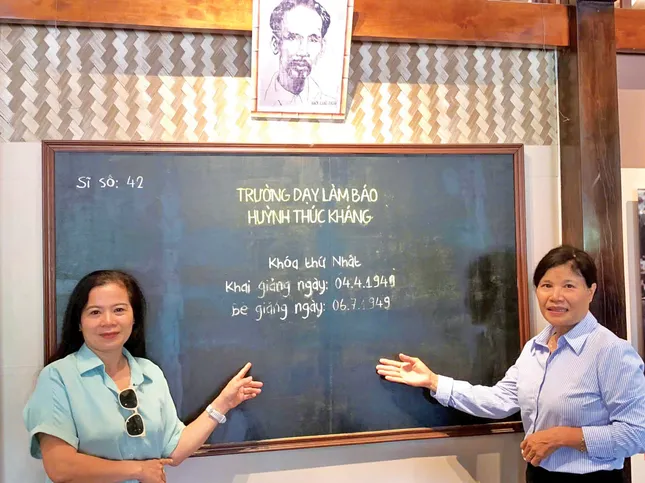 Sĩ số: 42
TRƯỜNG DẠY LÀM BÁO
HUỲNH THÚC KHÁNG
Khóa thứ Nhất
Khai giảng ngày: 04.4.1949
bế giảng ngày: 06.7.1949